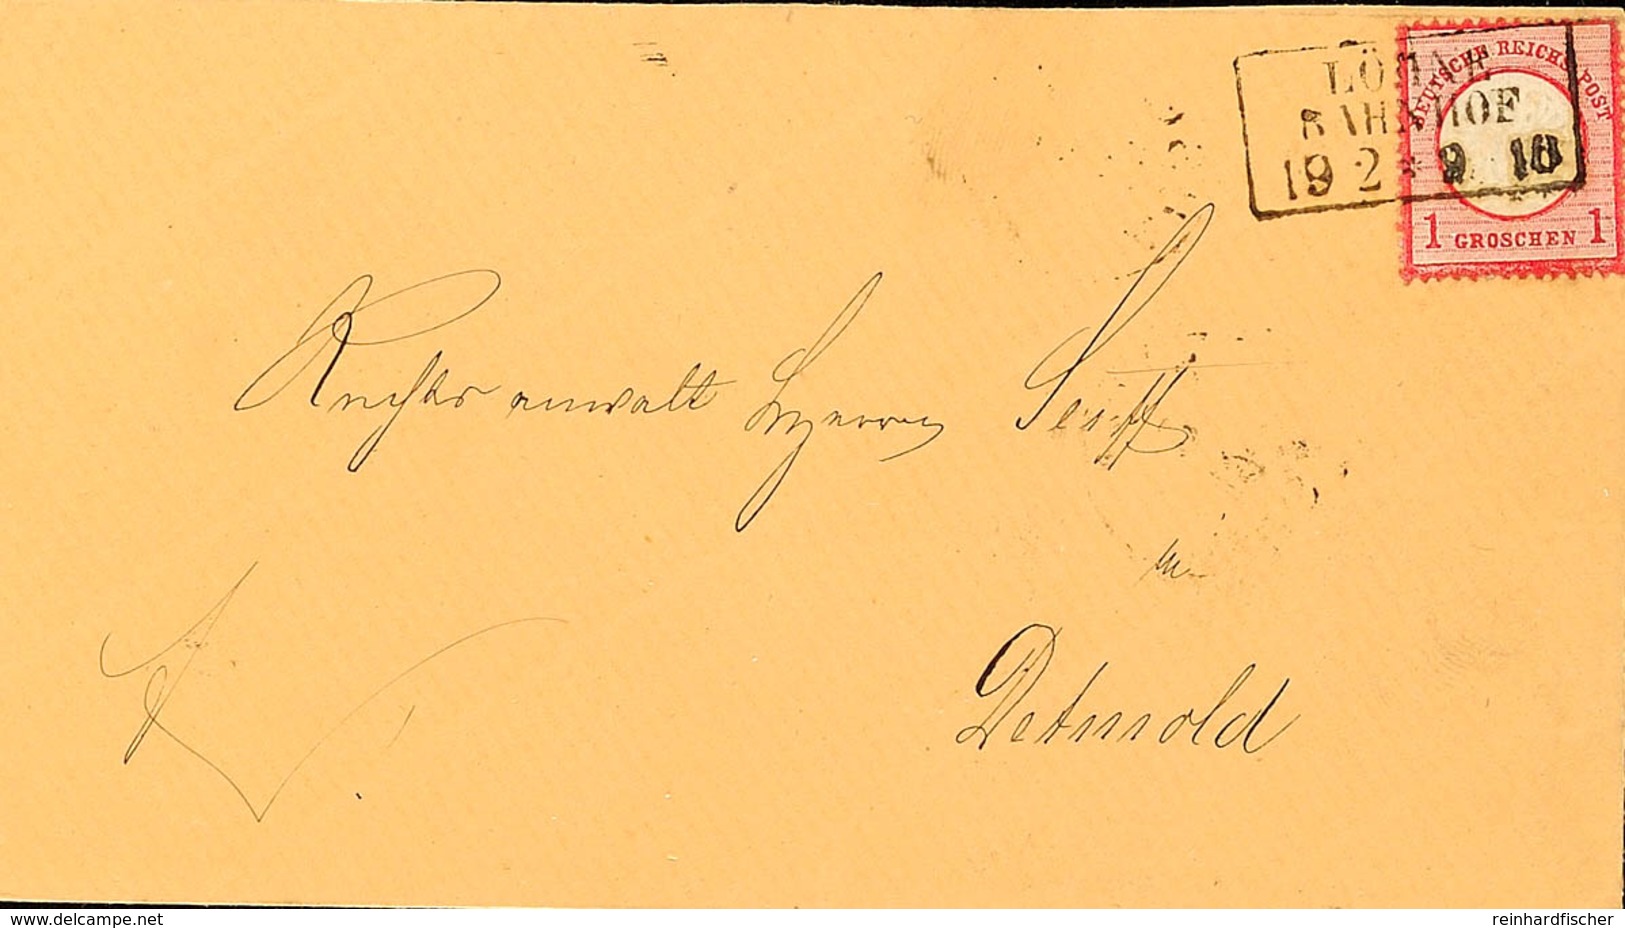 LÖHNE
BAHNHOF
19 2 * 9 10
DEUTSCHE REICHS-POST
1 GROSCHEN 1
Rechtsanwalt Herrn Seiff
Detmold
www.delcampe.net
reinhardfischer